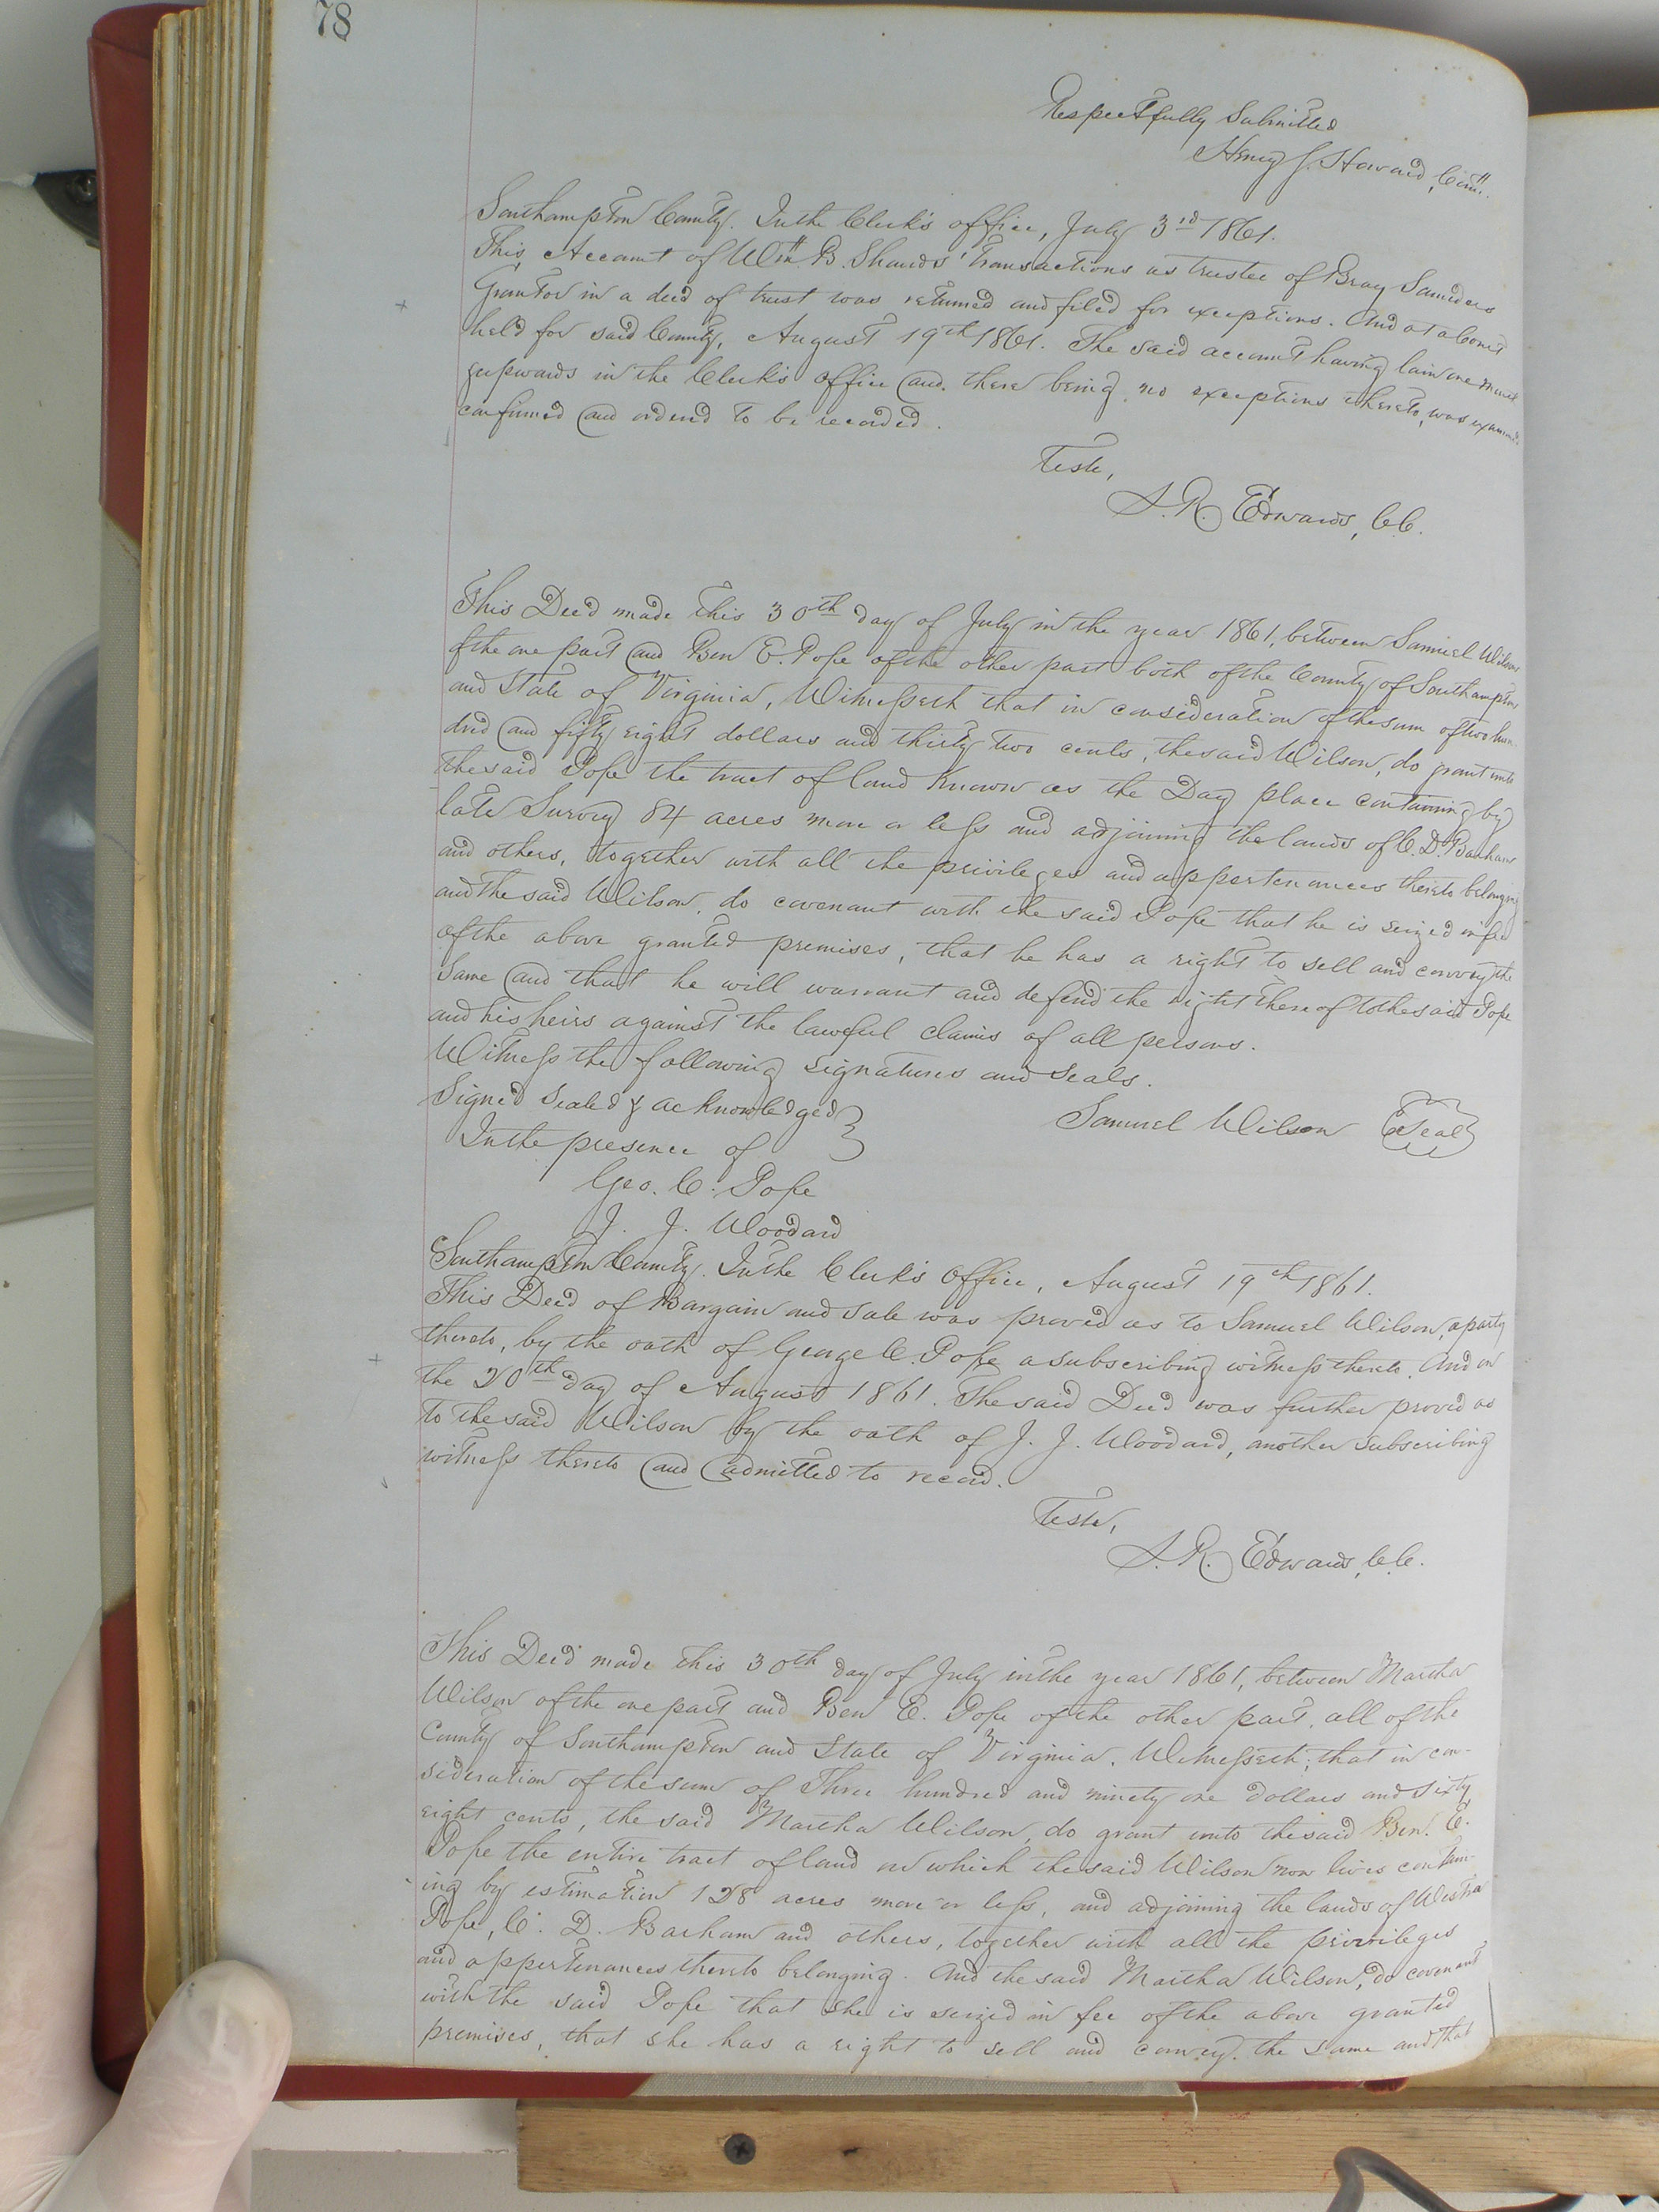 78
Respectfully Submitted
Henry J. Howard, Com.
Southampton County. In the Clerk's office, July 3rd 1861.
This Account of Wm B. Shands' Transactions as trustee of Bray Saunders
Grantor in a deed of trust was returned and filed for exceptions. And at a Court
held for said County, August 19th 1861. The said account having lain one month
& upwards in the Clerk's office and there being no exceptions thereto, was examined
confirmed and ordered to be recorded.
Teste,
L. R. Edwards, C.C.
This Deed made this 30th day of July in the year 1861, between Samuel Wilson
of the one part and Ben E. Pope of the other part both of the County of Southampton
and State of Virginia, Witnesseth that in consideration of the sum of two hun-
dred and fifty eight dollars and thirty two cents, the said Wilson, do grant unto
the said Pope the tract of land Known as the Day place containing by
late Survey 84 acres more or less and adjoining the lands of C. D. Barham
and others, together with all the privileges and appertenances thereto belonging
and the said Wilson, do covenant with the said Pope that he is seized in fee
of the above granted premises, that he has a right to sell and convey the
Same and that he will warrant and defend the right thereof to the said Pope
and his heirs against the lawful claims of all persons.
Witness the following signatures and seals.
Signed sealed & acknowledged
Samuel Wilson Seal
In the presence of
Geo. C. Pope
J. J. Woodard
Southampton County. In the Clerk's Office, August 19th 1861.
This Deed of Bargain and sale was proved as to Samuel Wilson, a party
thereto, by the oath of George C. Pope a subscribing witness thereto. And on
the 20th day of August 1861. The said Deed was further proved as
to the said Wilson by the oath of J. J. Woodard, another subscribing
witness thereto and admitted to record.
Teste,
L. R. Edwards, C.C.
This Deed made this 30th day of July in the year 1861, between Martha
Wilson of the one part and Ben E. Pope of the other part, all of the
County of Southampton and State of Virginia. Witnesseth; that in con-
sideration of the sum of Three hundred and ninety one dollars and sixty
eight cents, the said Martha Wilson, do grant unto the said Ben. E.
Pope the entire tract of land on which the said Wilson now lives contain-
ing by estimation 128 acres more or less, and adjoining the lands of
Pope, C. D. Barham and others, together with all the privileges
and appertenances thereto belonging. And the said Martha Wilson, do covenant
with the said Pope that she is seized in fee of the above granted
premises, that she has a right to sell and convey the same and that